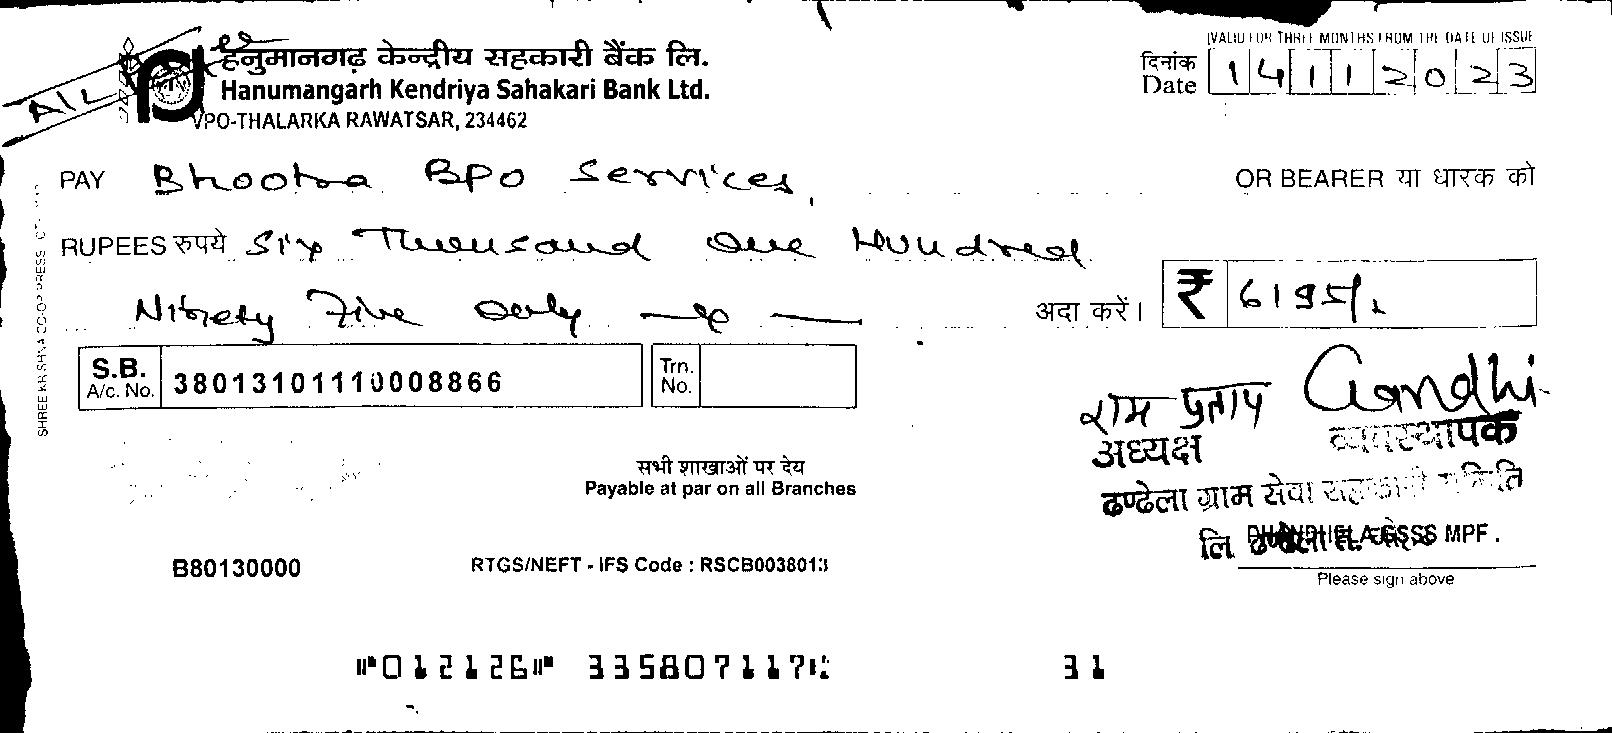 A/c
हनुमानगढ़ केन्द्रीय सहकारी बैंक लि.
Hanumangarh Kendriya Sahakari Bank Ltd.
VPO-THALARKA RAWATSAR, 234462
(VALID FOR THREE MONTHS FROM THE DATE OF ISSUE
दिनांक
Date 14112023
PAY Bhootra BPO Services, OR BEARER या धारक को
RUPEES रुपये Six Thousand One Hundred
Ninety Five Only अदा करें। ₹ 6195/-
S.B.
A/c. No. 38013101110008866
Trn.
No.
राम प्रताप Gandhi
अध्यक्ष व्यवस्थापक
ढण्ढेला ग्राम सेवा सहकारी समिति
लि
DHANDHELA GSSS MPF.
Please sign above
सभी शाखाओं पर देय
Payable at par on all Branches
B80130000
RTGS/NEFT - IFS Code : RSCB0038013
⑈012126⑈ 335807117⑆ 31